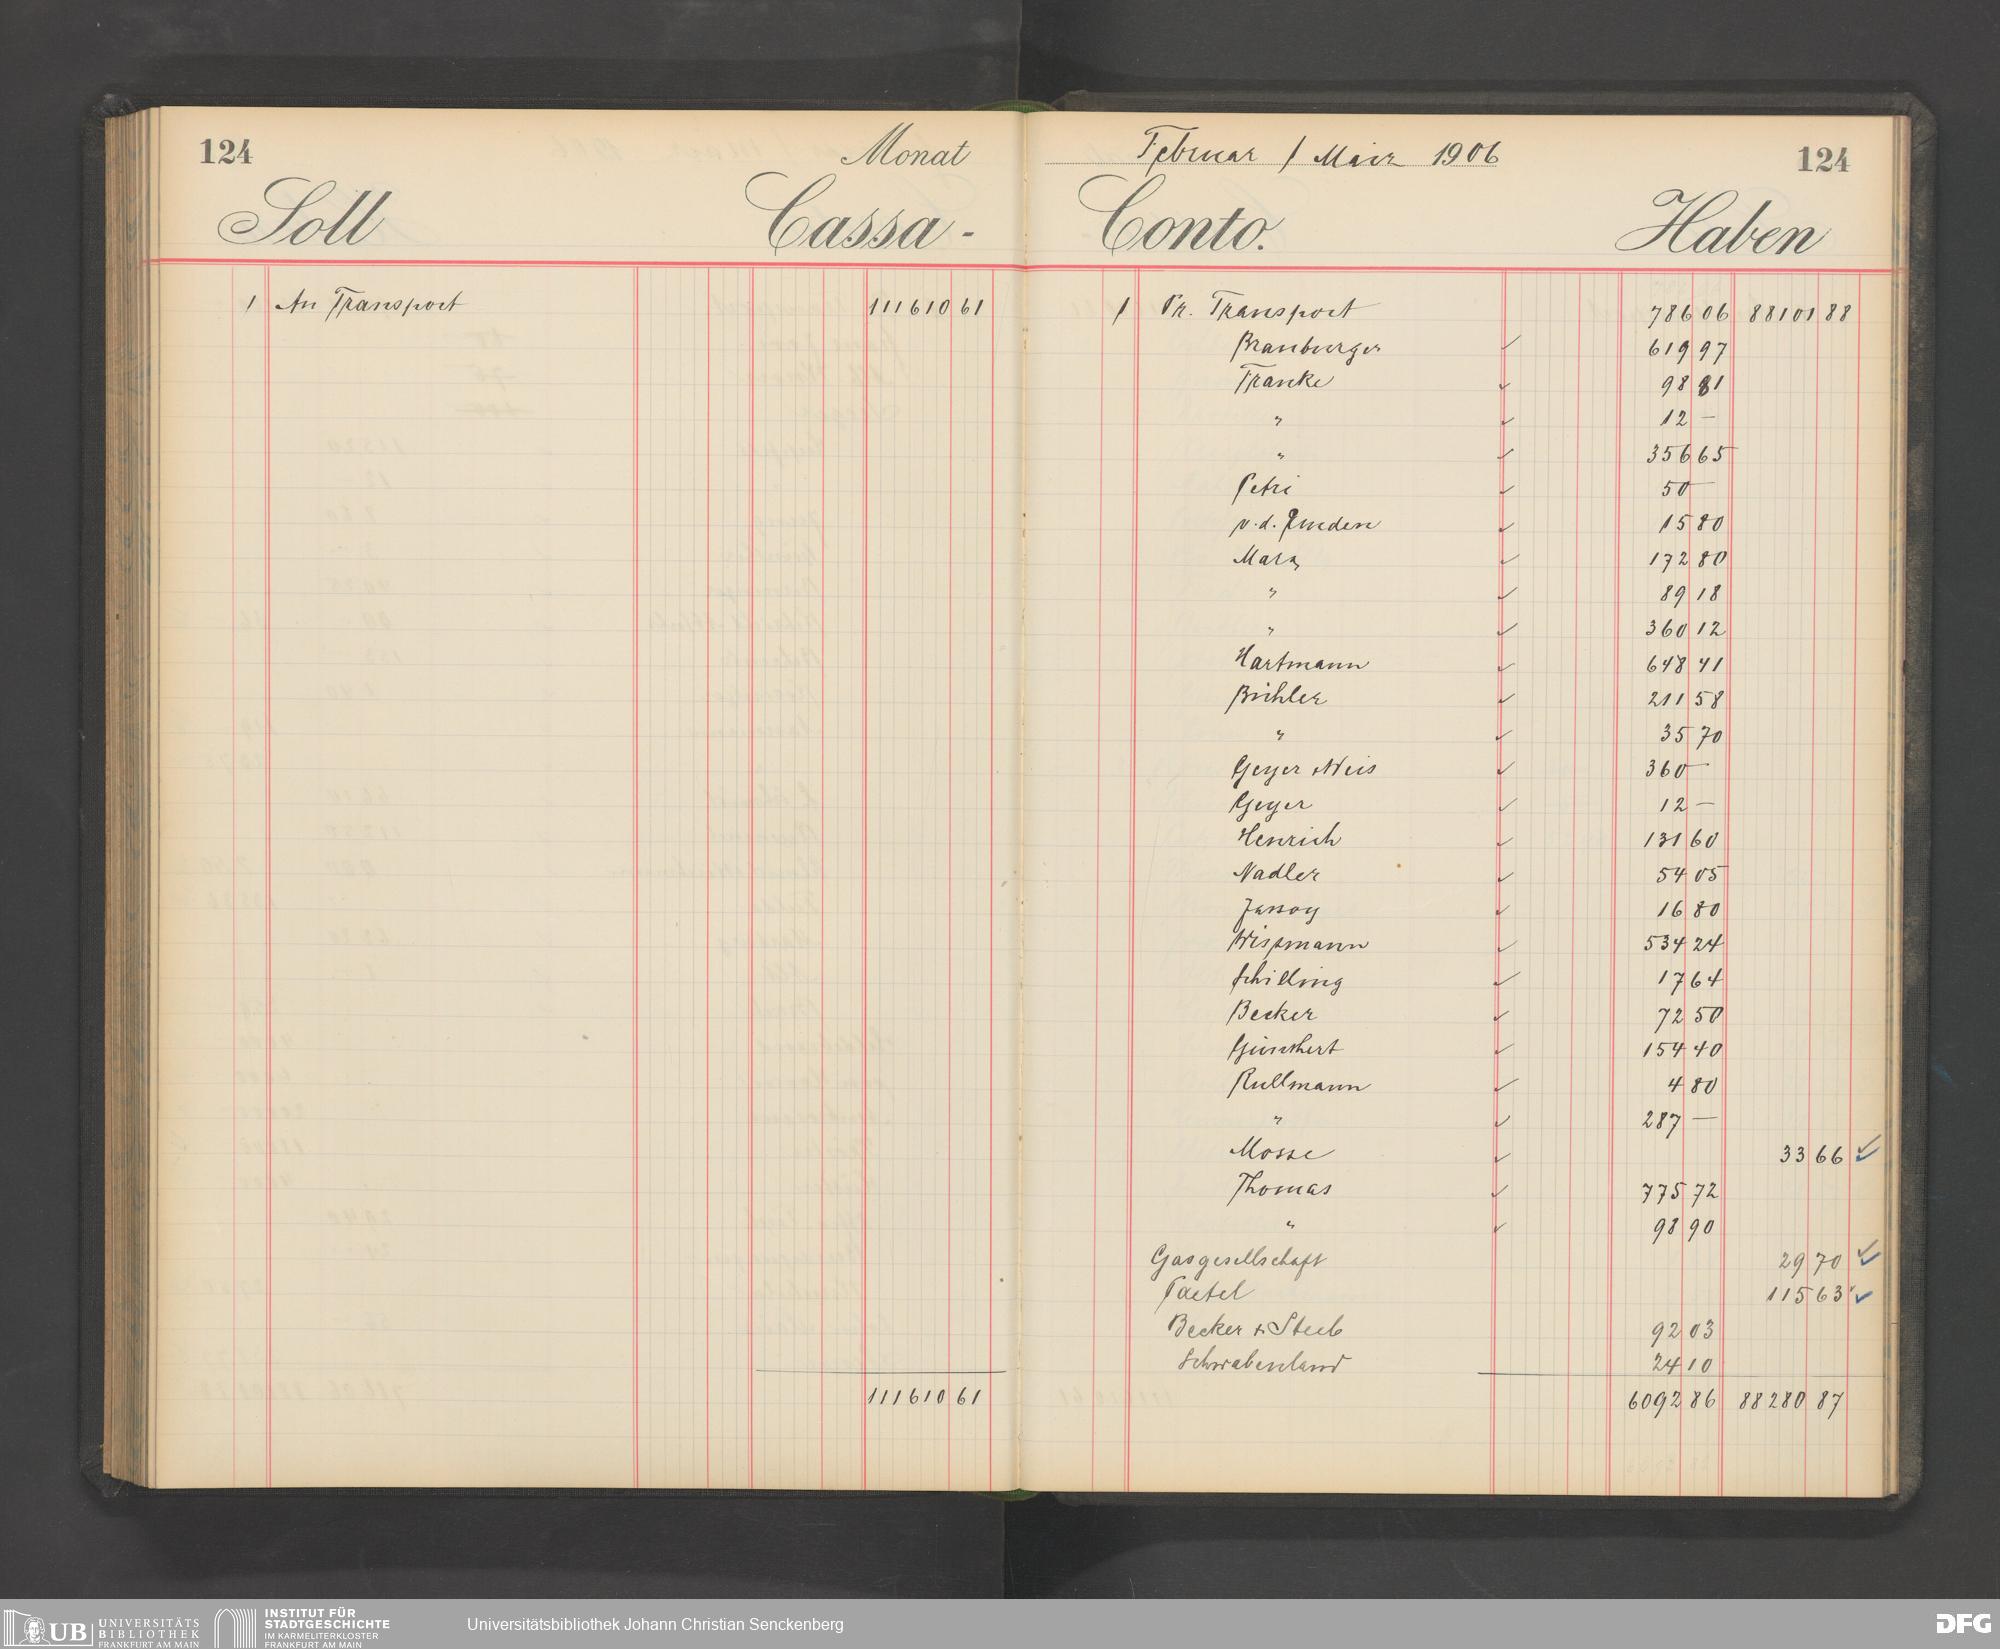 124
Monat
Soll
Cassa-
1 An Transport 111610 61
111610 61
Februar / März 1906
124
Conto.
Haben
1 Pr. Transport 786 06 88101 88
Branburger 619 97
Franke 98 81
" 12 —
" 356 65
Petri 50 —
v. d. 15 80
Marx 172 80
" 89 18
" 360 12
Hartmann 648 41
Bühler 211 58
" 35 70
Geyer & Weis 360 —
Geyer 12 —
Henrich 131 60
Nadler 54 05
Jassoy 16 80
Wissmann 534 24
Schilling 17 64
Becker 72 50
Günthert 154 40
Rullmann 4 80
" 287 —
Mosse 33 66
Thomas 775 72
" 98 90
Gasgesellschaft 29 70
Paetel 115 63
Becker & Steeb 92 03
Schwabenland 24 10
6092 86 88280 87
UB UNIVERSITÄTS BIBLIOTHEK FRANKFURT AM MAIN
INSTITUT FÜR STADTGESCHICHTE IM KARMELITERKLOSTER FRANKFURT AM MAIN
Universitätsbibliothek Johann Christian Senckenberg
DFG